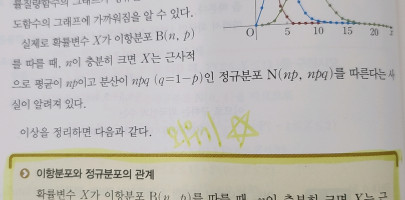 률질량함수의 그래프가 정규분포의 확률밀
도함수의 그래프에 가까워짐을 알 수 있다.
O 5 10 15 20 x
실제로 확률변수 X가 이항분포 B(n, p)
를 따를 때, n이 충분히 크면 X는 근사적
으로 평균이 np이고 분산이 npq (q=1-p)인 정규분포 N(np, npq)를 따른다는 사
실이 알려져 있다.
이상을 정리하면 다음과 같다.
외우기
이항분포와 정규분포의 관계
확률변수 X가 이항분포 B(n, p)를 따를 때, n이 충분히 크면 X는 근